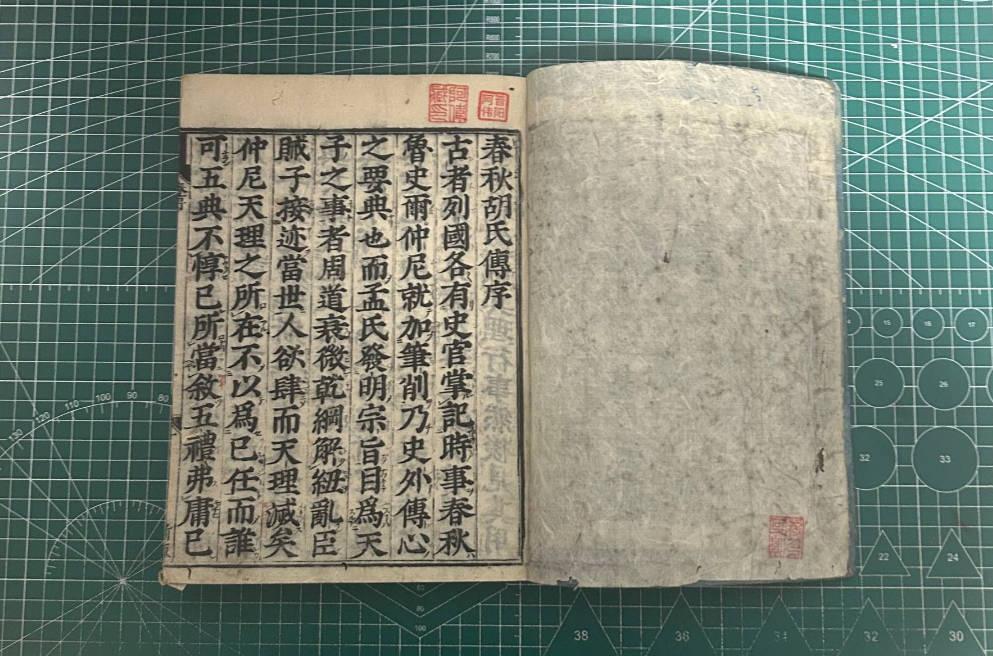 春秋胡氏傳序
古者列國各有史官掌記時事春秋
魯史爾仲尼就加筆削乃史外傳心
之要典也而孟氏發明宗旨目爲天
子之事者周道衰微乾綱解紐亂臣
賊子接迹當世人欲肆而天理滅矣
仲尼天理之所在不以爲己任而誰
可五典不惇己所當敘五禮弗庸己
130
120
110
100
90
80
15
16
17
25
26
32
33
22
24
38
36
32
30